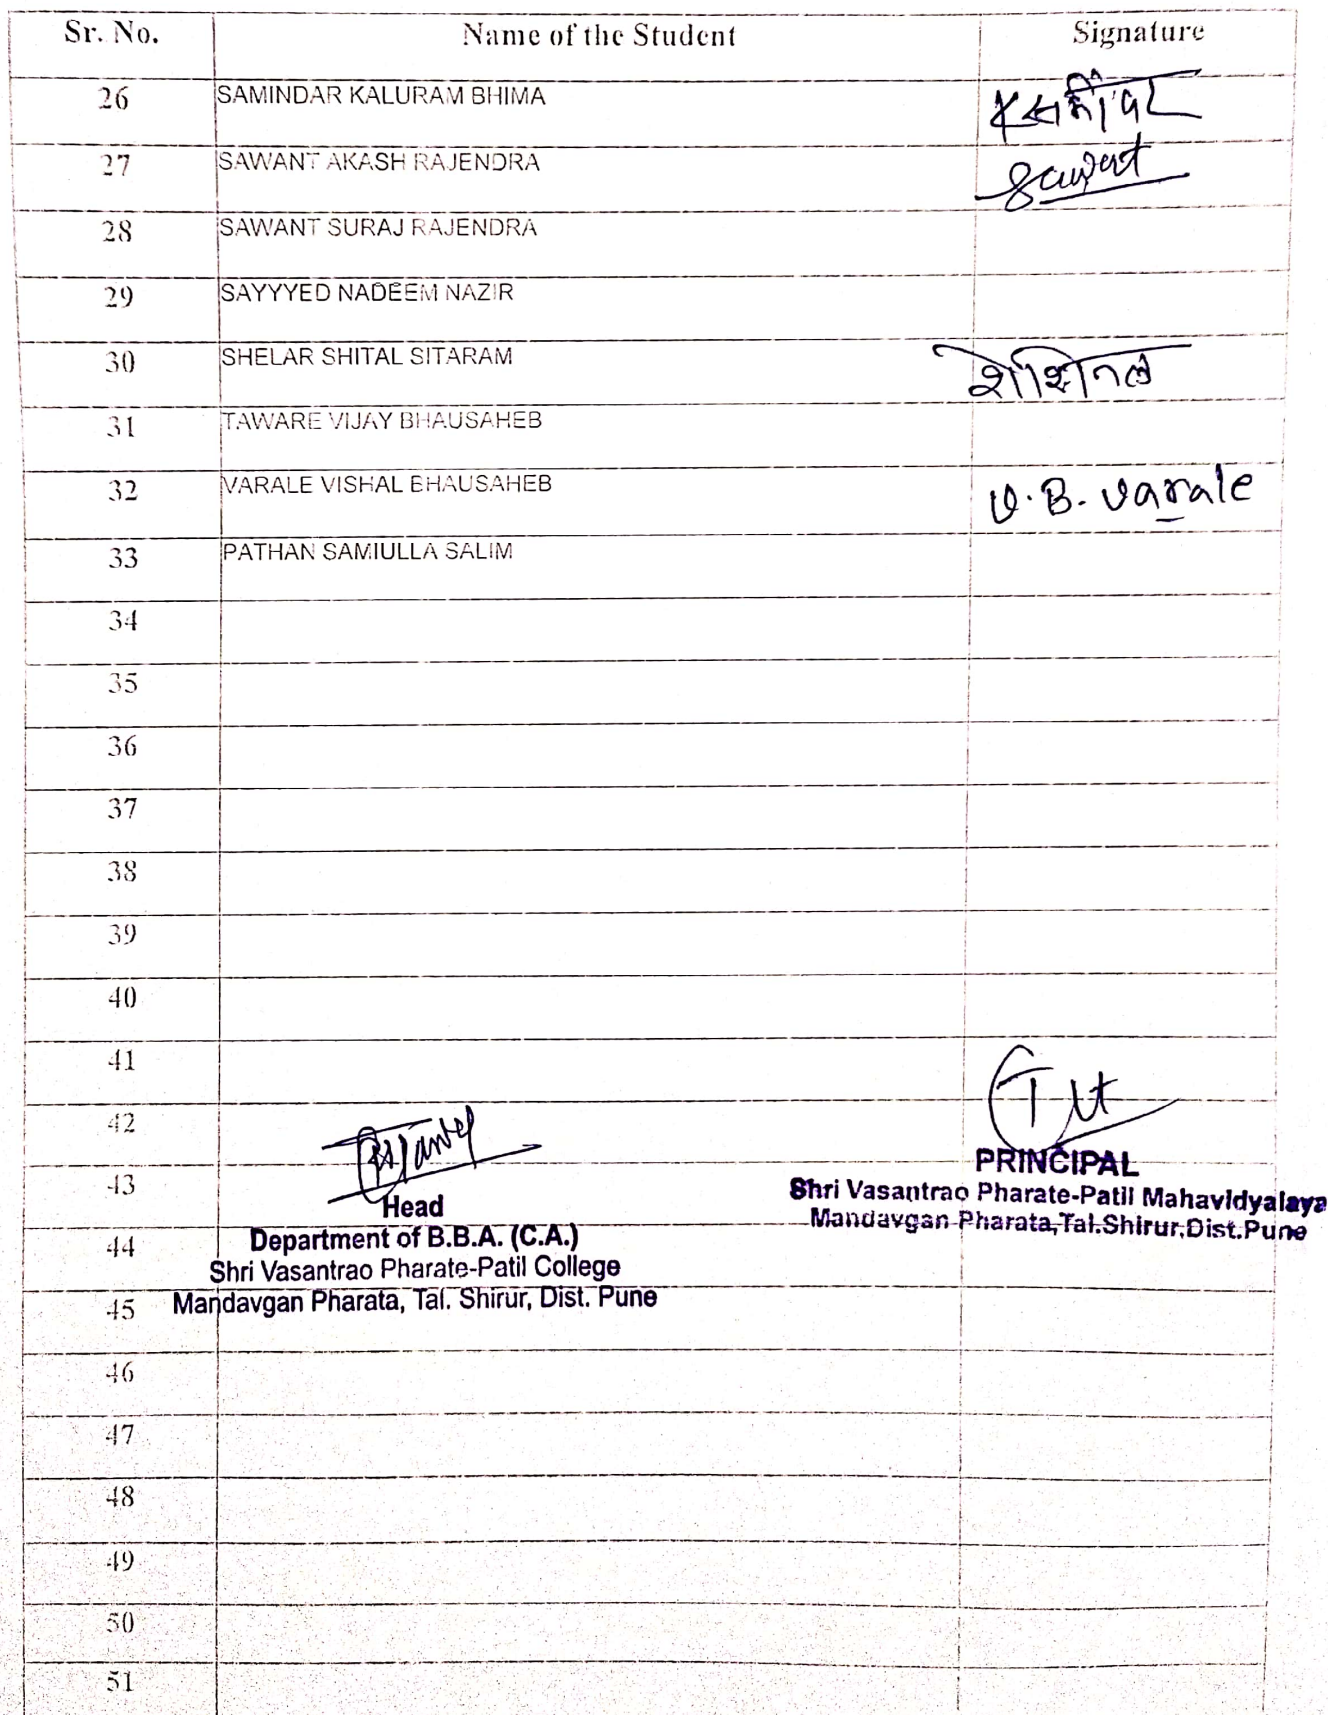 Sr. No. Name of the Student Signature
26 SAMINDAR KALURAM BHIMA
27 SAWANT AKASH RAJENDRA Sawant
28 SAWANT SURAJ RAJENDRA
29 SAYYYED NADEEM NAZIR
30 SHELAR SHITAL SITARAM
31 TAWARE VIJAY BHAUSAHEB
32 VARALE VISHAL BHAUSAHEB V.B. varale
33 PATHAN SAMIULLA SALIM
34
35
36
37
38
39
40
41
42
43
44
45
46
47
48
49
50
51
Head
Department of B.B.A. (C.A.)
Shri Vasantrao Pharate-Patil College
Mandavgan Pharata, Tal. Shirur, Dist. Pune
PRINCIPAL
Shri Vasantrao Pharate-Patil Mahavidyalaya
Mandavgan Pharata,Tal.Shirur,Dist.Pune